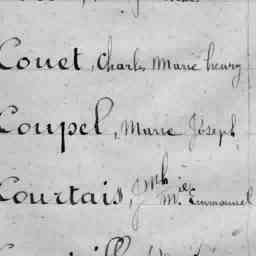 Couet, Charles Marie henry
Coupel, Marie Joseph
Courtais, Jph Mie Emmanuel